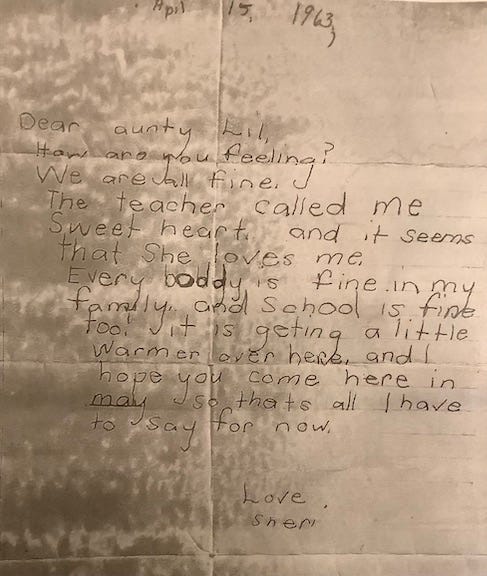 April 15, 1963,
Dear aunty Lil,
How are you feeling?
We are all fine.
The teacher called me
Sweet heart. and it seems
that She loves me.
Every boddy is fine in my
family. and School is fine
Too! it is geting a little
warmer over here, and I
hope you come here in
may so thats all I have
to say for now.
Love,
Sheri